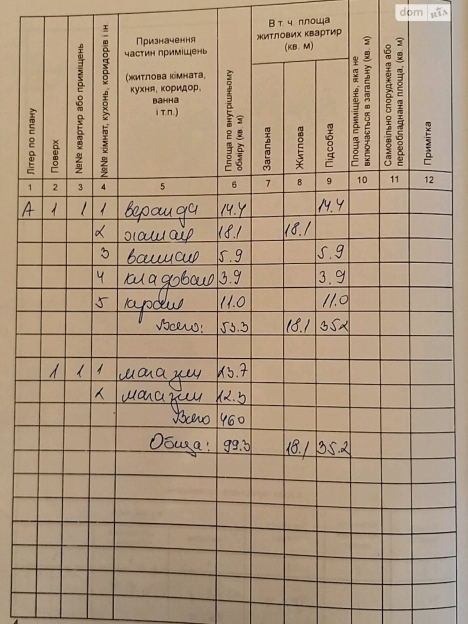 dom RIA
Літер по плану
Поверх
№№ квартир або приміщень
№№ кімнат, кухонь, коридорів і ін
Призначення
частин приміщень
(житлова кімната,
кухня, коридор,
ванна
і т.п.)
Площа по внутрішньому
обміру (кв. м)
В т. ч. площа
житлових квартир
(кв. м)
Загальна
Житлова
Підсобна
Площа приміщень, яка не
включається в загальну (кв. м)
Самовільно споруджена або
переобладнана площа, (кв. м)
Примітка
1 2 3 4 5 6 7 8 9 10 11 12
А 1 1 1 веранда 14.4 14.4
2 жилая 18.1 18.1
3 ванная 5.9 5.9
4 кладовая 3.9 3.9
5 кухня 11.0 11.0
Всего: 53.3 18.1 35.2
1 1 1 магазин 23.7
2 магазин 12.3
Всего 46.0
Общая: 99.3 18.1 35.2